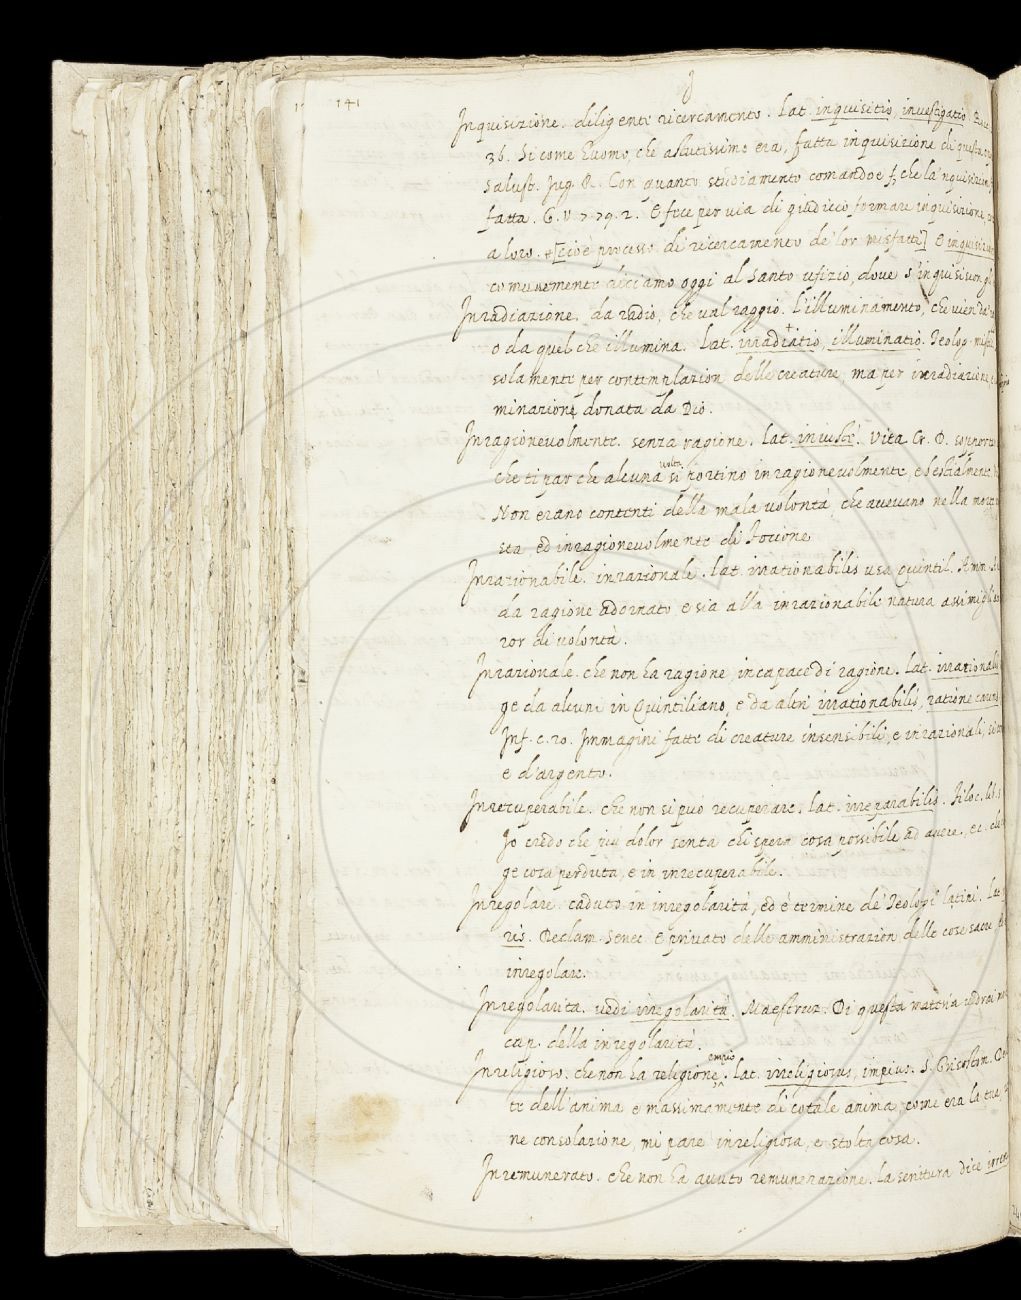 141
J
Inquisizione. diligente ricercamento. Lat. inquisitio, investigatio.
36. Si come huomo, che astutissimo era, fatta inquisizione di questa
Salust. Jug. R. Con quanto studiamento comandoe si, che la 'nquisizion
fatta. G. V. 7. 79. 2. E fece per via di giudicio formare inquisizione,
a loro. +[cioè processo di ricercamento de' lor misfatti] E inquisizione
comunemente diciamo oggi al Santo ufizio, dove s'inquisiscon gli
Inradiazione. da radio, che val raggio. l'illuminamento, che vien da'
o da quel che illumina. Lat. irradiatio, illuminatio. Teolog. mist.
solamente per contemplazion delle creature, ma per inradiazione,
minazione donata da Dio.
Inragionevolmente. senza ragione. Lat. iniuste. Vita Cr. D. sopporta
che ti par che alcuna volta si portino inragionevolmente, e bestialmente
Non erano contenti della mala volontà, che avevano nella morte
sta ed inragionevolmente di Focione
Inrazionabile. inrazionale. Lat. irrationabilis usa Quintil. Amm. A
da ragione adornato, e sia alla inrazionabile natura assimigliato
ror di volontà.
Inrazionale. che non ha ragione, incapace di ragione. Lat. irrationalis
ge da alcuni in Quintiliano, e da altri irrationabilis, ratione carens
Inf. c. 20. Immagini fatte di creature insensibili, e inrazionali,
e d'argento.
Inrecuperabile. che non si può recuperare. Lat. irreparabilis. Filoc. lib. 5
Io credo che più dolor senta chi spera cosa possibile ad avere, ec. che
ge cosa perduta, e in inrecuperabile.
Inregolare. caduto in inregolarità, ed è termine de' Teologi latini. Lat.
ris. Declam. Senec. E privato delle amministrazion delle cose sacre
inregolare.
Inregolarità. vedi irregolarità. Maestruz. Di questa materia vedrai
cap. della inregolarità.
Inreligioso. che non ha religione, empio. Lat. irreligiosus, impius. S. Grisostom.
te dell'anima e massimamente di cotale anima, come era la tua,
ne consolazione, mi pare inreligiosa, e stolta cosa.
Inremunerato. che non ha avuto remunerazione. La scrittura dice